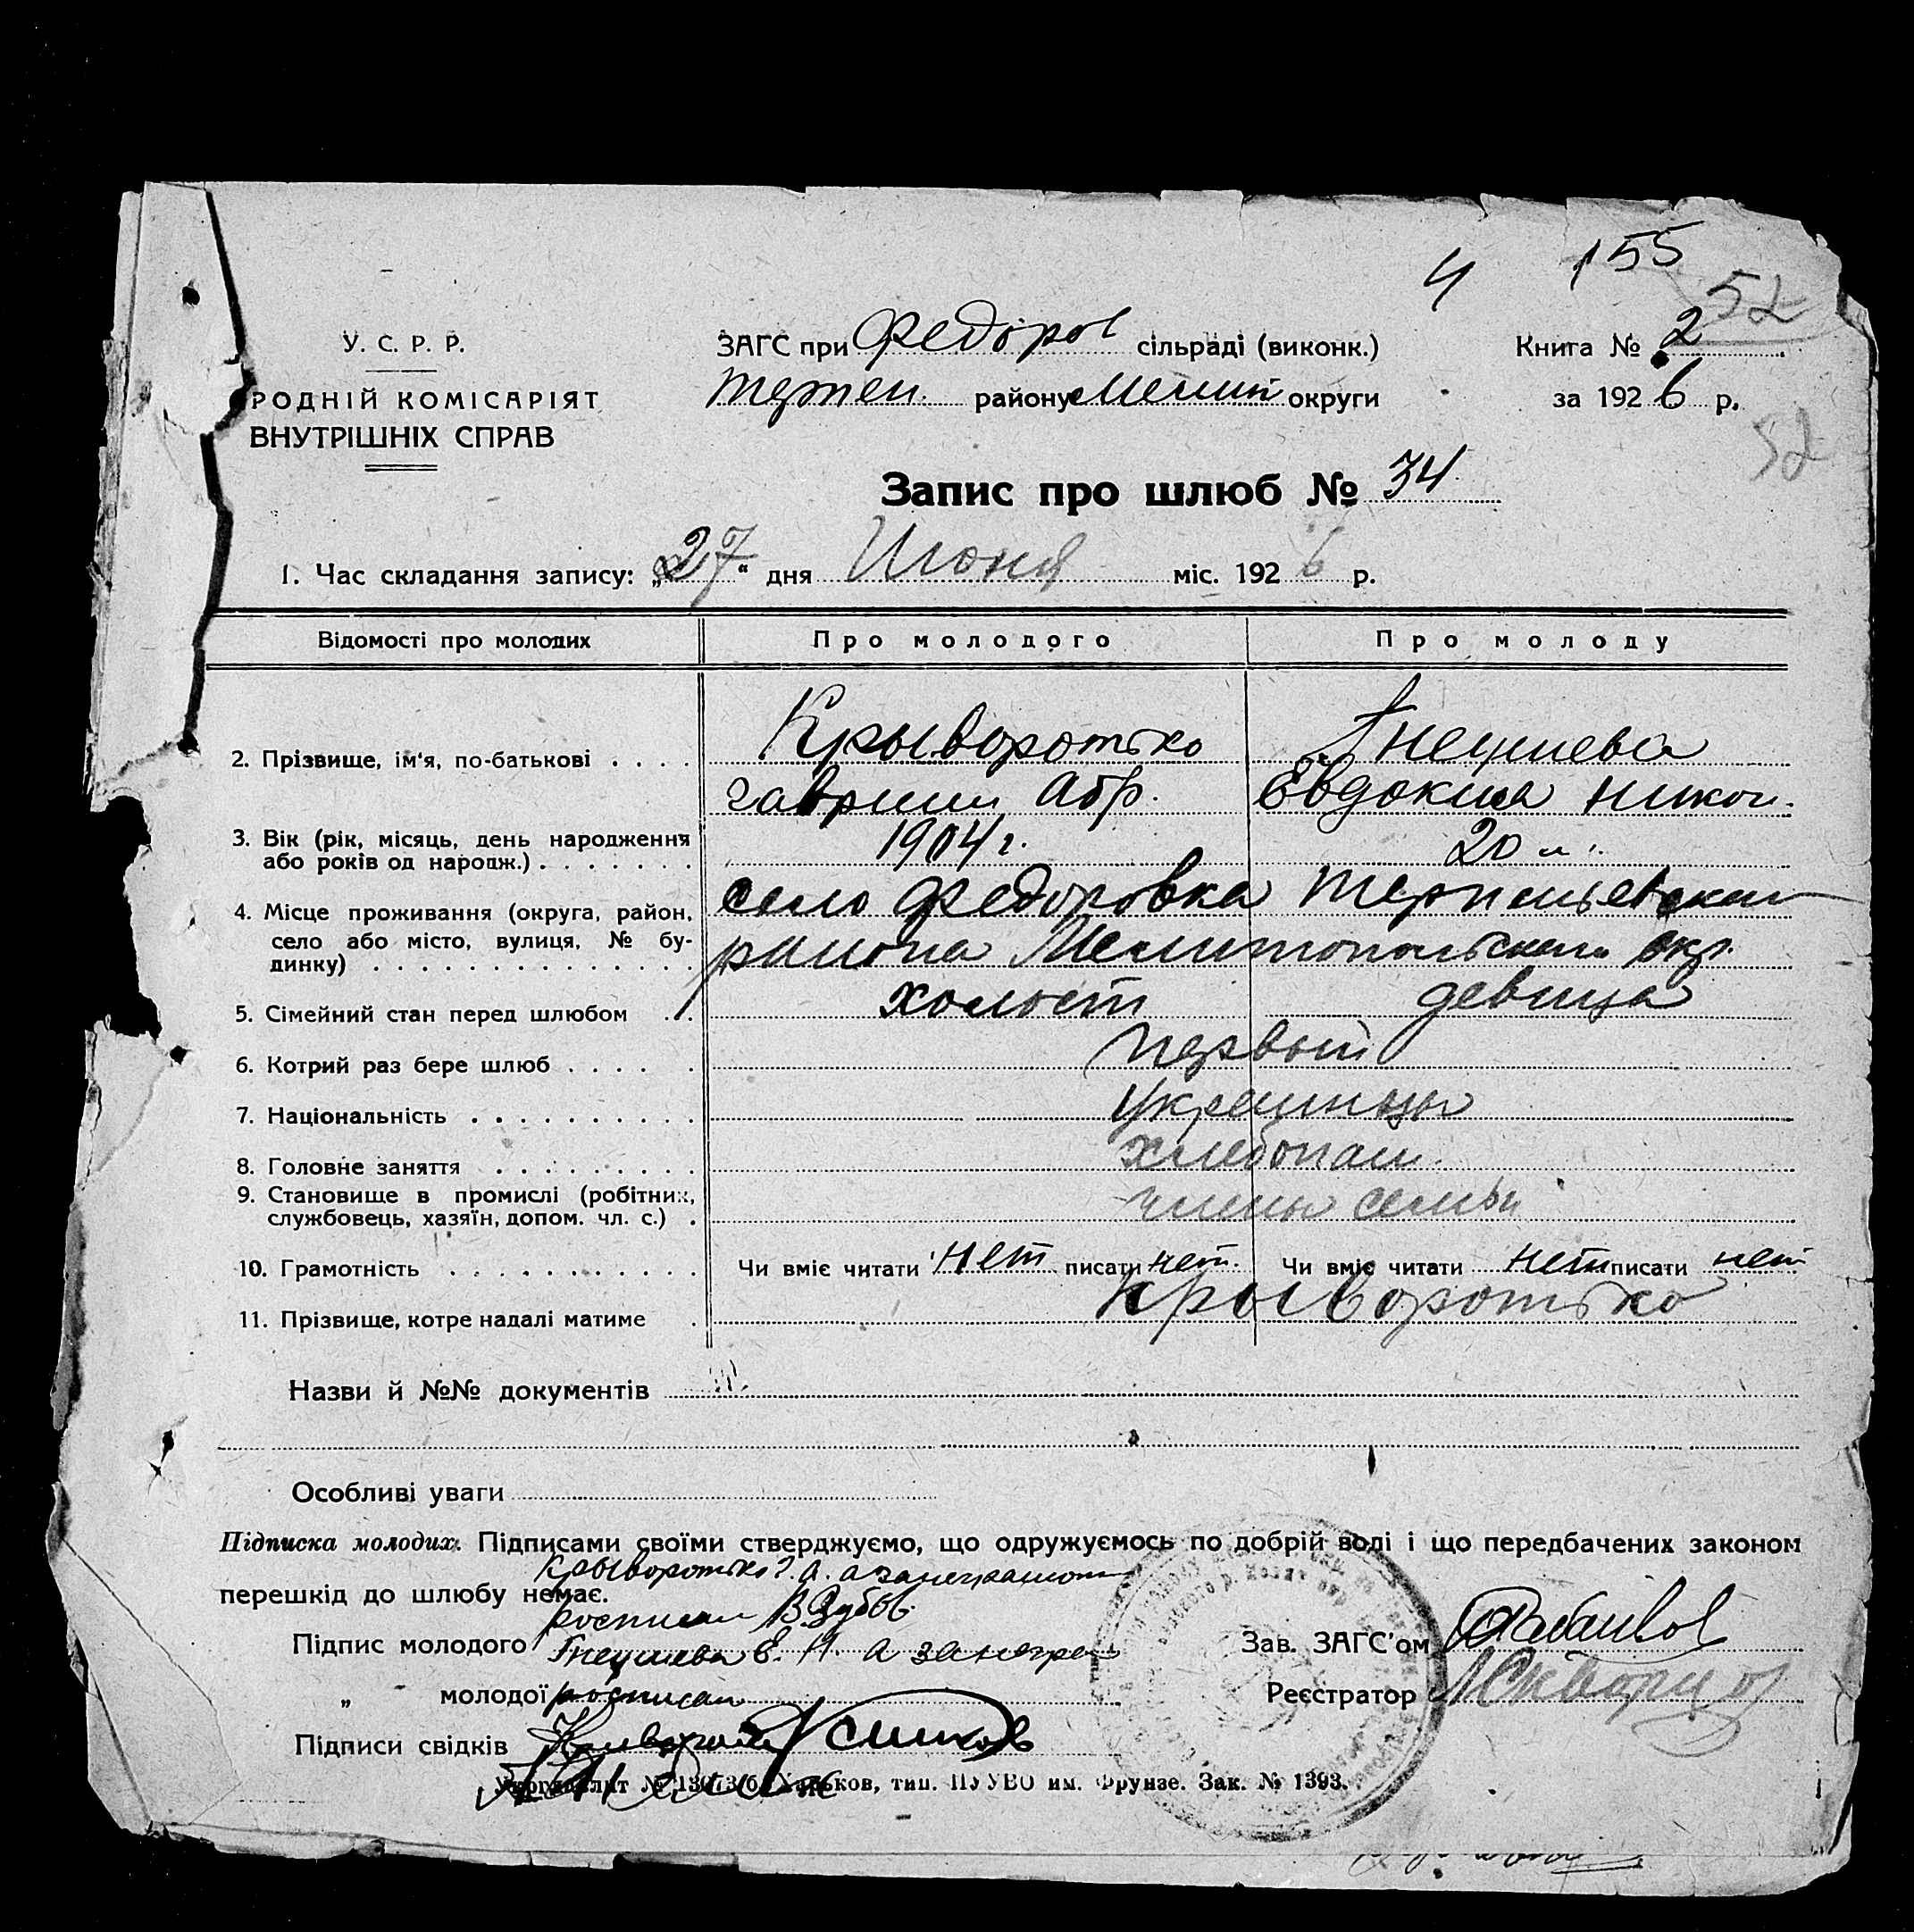 4 155
52
У. С. Р. Р.
РОДНІЙ КОМІСАРІЯТ
ВНУТРІШНІХ СПРАВ
ЗАГС при Федоров сільраді (виконк.)
Терпен. району Мелит округи
Книга № 2
за 1926 р.
52
Запис про шлюб № 34
1. Час складання запису: „27“ дня Июня міс. 1926 р.
Відомості про молодих Про молодого Про молоду
2. Прізвище, ім'я, по-батькові . . . . Крыворотько Гнеушева
Гаврии Абр. Евдокия Никол.
3. Вік (рік, місяць, день народження або років од народж.) . . . . . . . 1904 г. 20 л.
4. Місце проживання (округа, район, село або місто, вулиця, № будинку) . . . . . . . . . . . . . . село Федоровка Терпеньевского
района Мелитопольского окр.
5. Сімейний стан перед шлюбом . . холост девица
6. Котрий раз бере шлюб . . . . . первый
7. Національність . . . . . . . . . . украинцы
8. Головне заняття . . . . . . . . . хлебопаш.
9. Становище в промислі (робітник, службовець, хазяїн, допом. чл. с.) . члены семьи
10. Грамотність . . . . . . . . . . . Чи вміє читати нет писати нет. Чи вміє читати нет писати нет
11. Прізвище, котре надалі матиме . Крыворотько
Назви й №№ документів
Особливі уваги
Підписка молодих. Підписами своїми стверджуємо, що одружуємось по добрій волі і що передбачених законом
перешкід до шлюбу немає.
Крыворотько Г. А. а за неграмотн
росписал В. Зубов
Підпис молодого Гнеушева Е. Н. а за негра
„ молодої росписал
Підписи свідків
Зав. ЗАГС'ом
Реєстратор Скворцов
Укрголовліт № 13073/б. Харьков, тип. ПУУВО им. Фрунзе. Зак. № 1393.